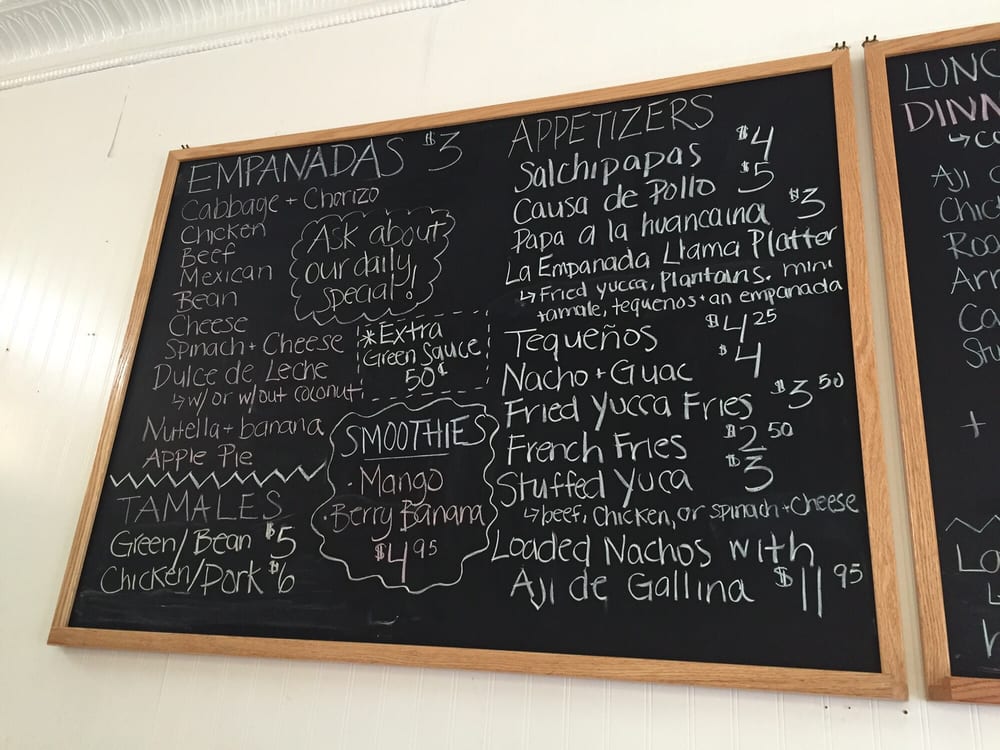 EMPANADAS $3
Cabbage + Chorizo
Chicken
Beef
Mexican
Bean
Cheese
Spinach + Cheese
Dulce de Leche
↳ w/ or w/out coconut
Nutella + banana
Apple Pie
Ask about
our daily
special!
*Extra
Green Sauce
50¢
TAMALES
Green/Bean $5
Chicken/Pork $6
SMOOTHIES
· Mango
· Berry Banana
$4.95
APPETIZERS
Salchipapas $4
Causa de Pollo $5
Papa a la huancaina $3
La Empanada Llama Platter
↳ Fried yucca, Plantains, mini
tamale, tequenos + an empanada
Tequeños $4.25
Nacho + Guac $4
Fried Yucca Fries $3.50
French Fries $2.50
Stuffed Yuca $3
↳ beef, Chicken, or spinach + cheese
Loaded Nachos with
Aji de Gallina $11.95
LUNC
DINN
↳ co
Aji
Chic
Roa
Arr
Ca
Stu
+
Lo